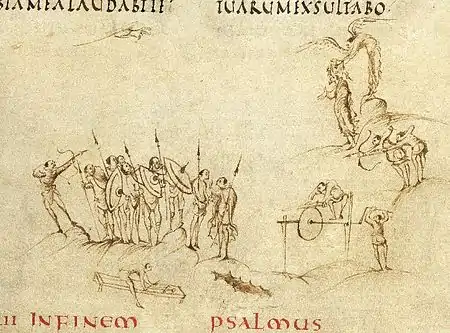 BIAMEA
TUARUM EXSULTABO
II IN FINEM
PSALMUS